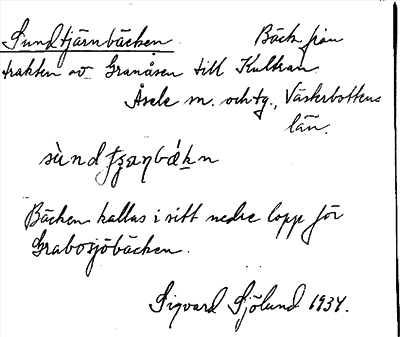 Sundtjärnbäcken. Bäck från
trakten av Granåsen till Kultran.
Åsele m. och tg., Västerbottens
län.
Bäcken kallas i sitt nedre lopp för
Grabosjöbäcken.
Sigvard Sjölund 1934.